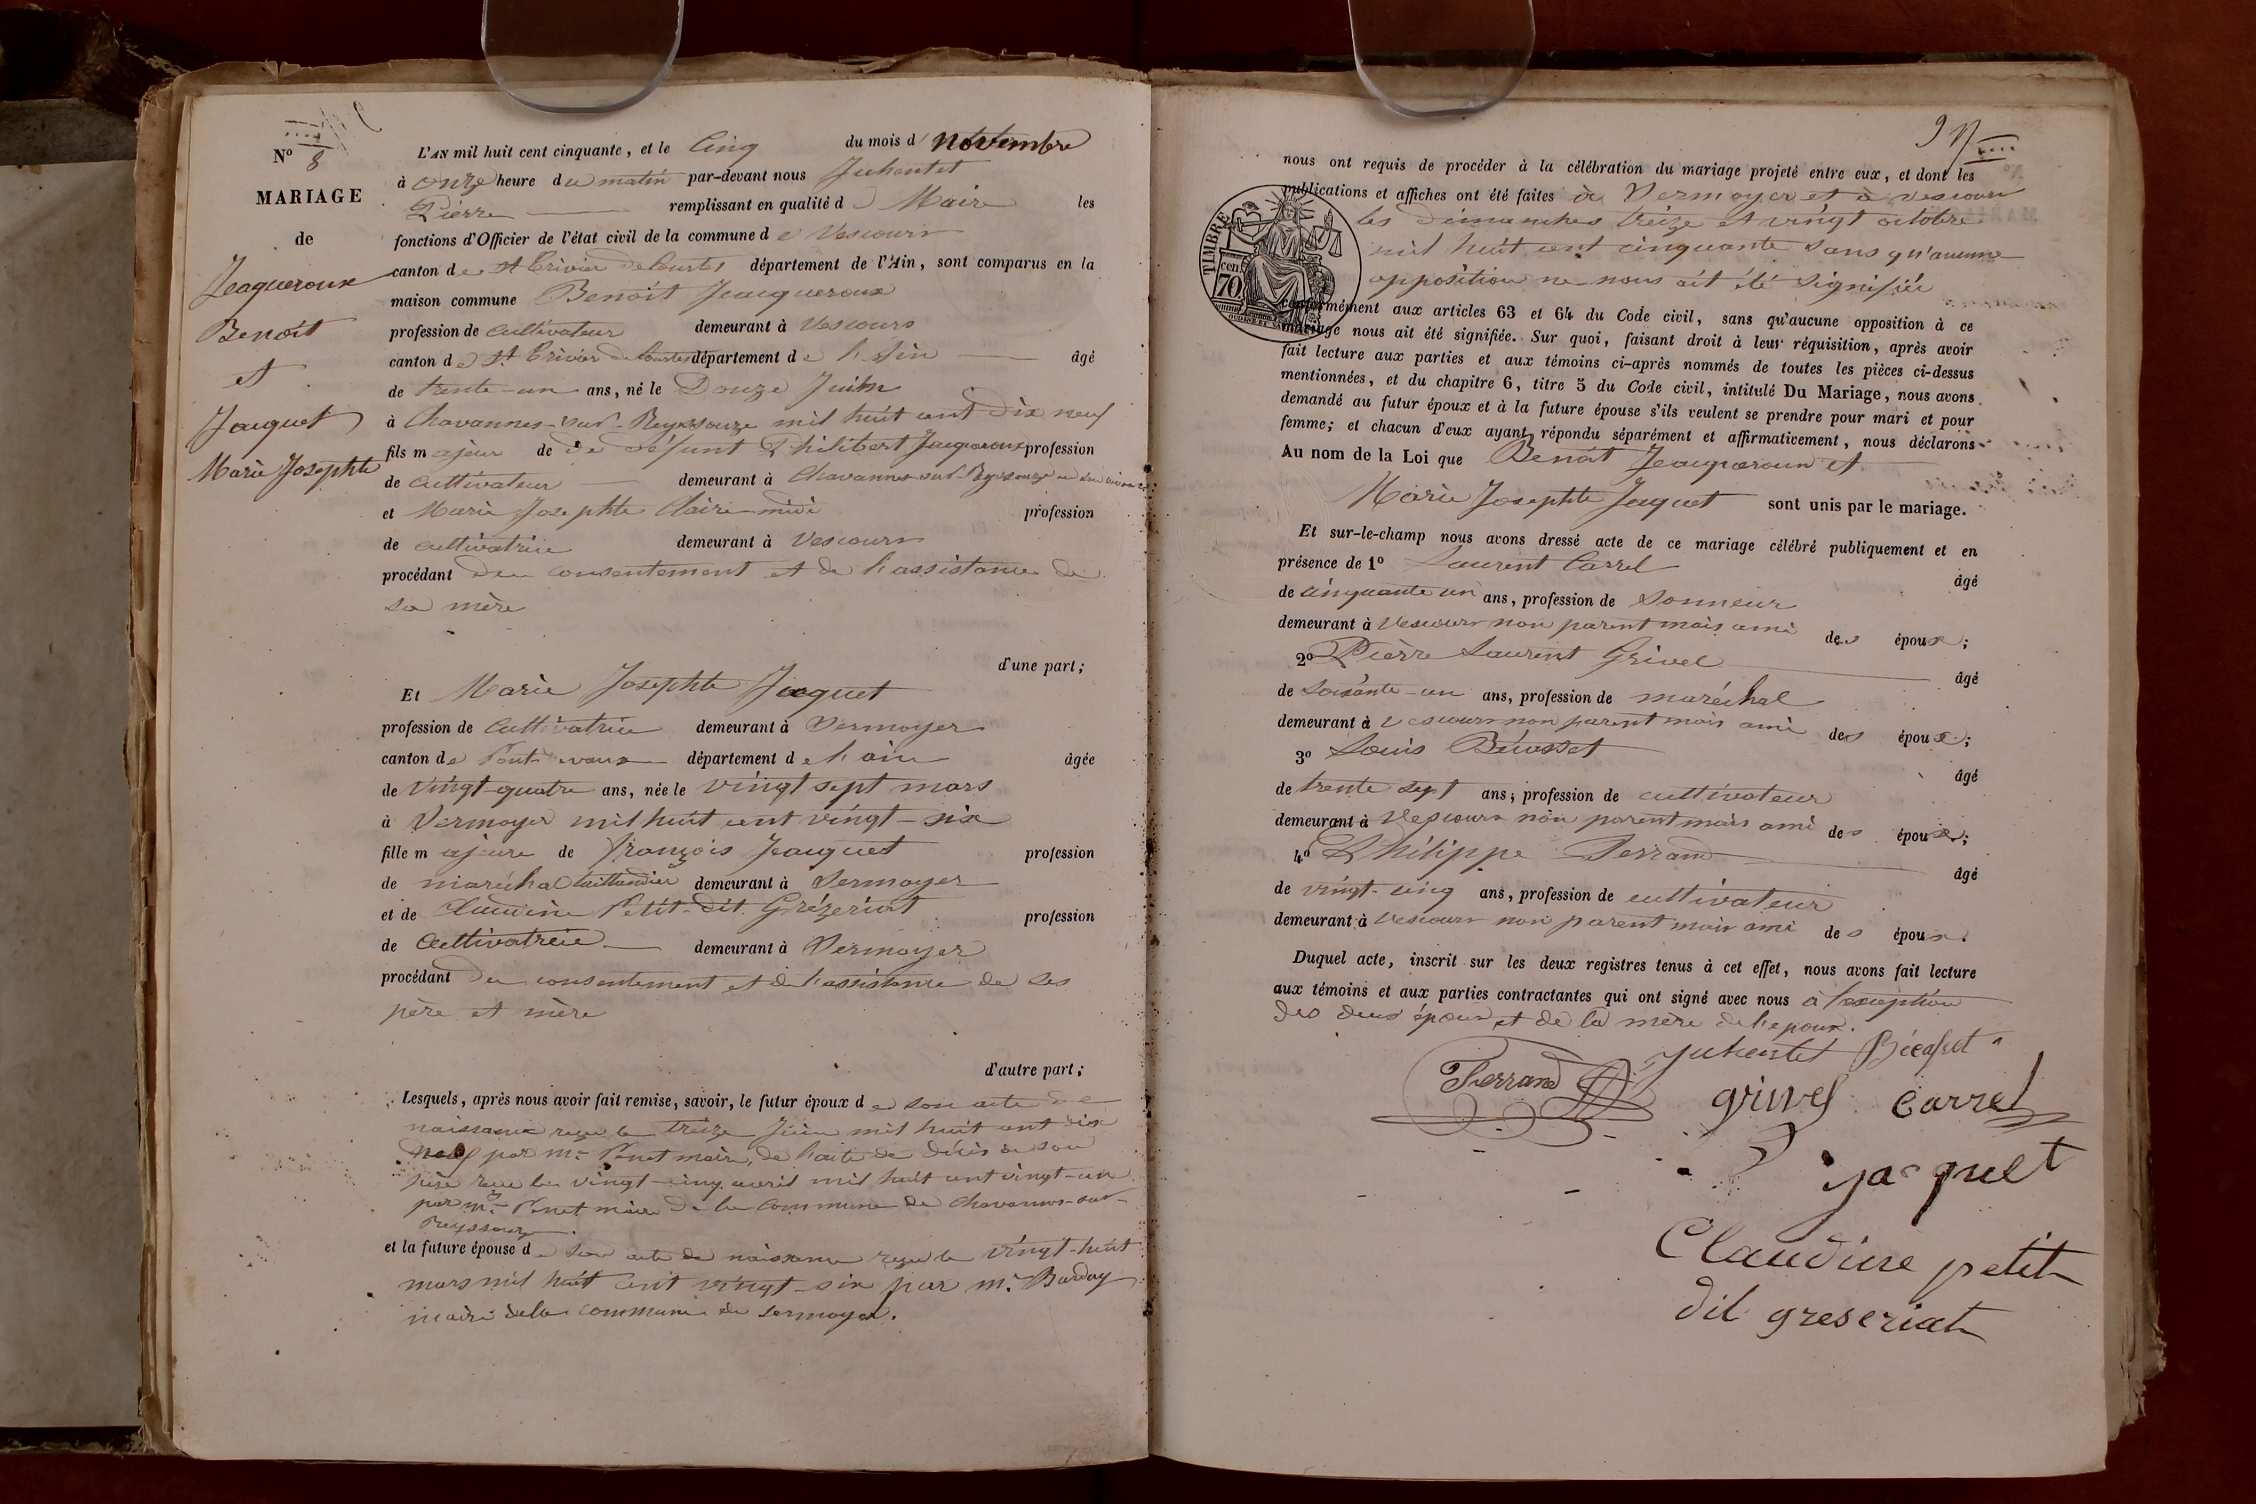 N° 8
MARIAGE
de
Jeaguéroux
Benoît
et
Jacquet
Marie Josephte
L'AN mil huit cent cinquante, et le Cinq du mois d novembre
à onze heure du matin par-devant nous Juhentet
Pierre remplissant en qualité d Maire les
fonctions d'Officier de l'état civil de la commune de Vescours
canton de St Trivier de Courtes département de l'Ain, sont comparus en la
maison commune Benoît Jeacqueroux
profession de Cultivateur demeurant à Vescours
canton de St Trivier de Courtes département de l'Ain âgé
de trente-un ans, né le Douze Juin
à Chavannes-sur-Reyssouze mil huit cent dix neuf
fils majeur de de défunt Philibert Jacqueroux profession
de Cultivateur demeurant à Chavannes-sur-Reyssouze
et Marie Josephte Clairemidi profession
de cultivatrice demeurant à Vescours
procédant du consentement et de l'assistance de
sa mère
d'une part;
Et Marie Josephte Jacquet
profession de Cultivatrice demeurant à Sermoyer
canton de Pont-de-vaux département de l'ain âgée
de vingt-quatre ans, née le vingt sept mars
à Sermoyer mil huit cent vingt-six
fille majeure de françois Jacquet profession
de maréchal taillandier demeurant à Sermoyer
et de Claudine Petit-dit Grézeriat profession
de Cultivatrice demeurant à Sermoyer
procédant du consentement et de l'assistance de ses
père et mère
d'autre part;
Lesquels, après nous avoir fait remise, savoir, le futur époux de son acte de
naissance reçu le treize Juin mil huit cent dix
neuf par mr Penet maire, de l'acte de décès de son
père reçu le vingt-cinq avril mil huit cent vingt-un
par mr Penet maire de la commune de Chavannes-sur-
Reyssouze.
et la future épouse de son acte de naissance reçu le vingt-huit
mars mil huit cent vingt-six par mr Barday
maire de la commune de Sermoyer.
nous ont requis de procéder à la célébration du mariage projeté entre eux, et dont les
publications et affiches ont été faites à Sermoyer et à Vescours
les dimanches treize et vingt octobre
mil huit cent cinquante sans qu'aucune
opposition ne nous ait été signifiée
TIMBRE
70 cen.
conformément aux articles 63 et 64 du Code civil, sans qu'aucune opposition à ce
mariage nous ait été signifiée. Sur quoi, faisant droit à leur réquisition, après avoir
fait lecture aux parties et aux témoins ci-après nommés de toutes les pièces ci-dessus
mentionnées, et du chapitre 6, titre 5 du Code civil, intitulé Du Mariage, nous avons
demandé au futur époux et à la future épouse s'ils veulent se prendre pour mari et pour
femme; et chacun d'eux ayant répondu séparément et affirmativement, nous déclarons
Au nom de la Loi que Benoit Jeacqueroux et
Marie Josephte Jaquet sont unis par le mariage.
Et sur-le-champ nous avons dressé acte de ce mariage célébré publiquement et en
présence de 1° Laurent Carrel âgé
de cinquante un ans, profession de Sonneur
demeurant à Vescours non parent mais ami des époux;
2° Pierre Laurent Grivel âgé
de soixante-un ans, profession de maréchal
demeurant à Vescours non parent mais ami des époux;
3° Louis Bécosset âgé
de trente sept ans, profession de cultivateur
demeurant à Vescours non parent mais ami des époux;
4° Philippe Ferrand âgé
de vingt-cinq ans, profession de cultivateur
demeurant à Vescours non parent mais ami des époux.
Duquel acte, inscrit sur les deux registres tenus à cet effet, nous avons fait lecture
aux témoins et aux parties contractantes qui ont signé avec nous à l'exception
des deux époux et de la mère de l'époux.
Juhentet
Ferrand
grivel Carrel
jacquet
Claudine petit
dit greseriat